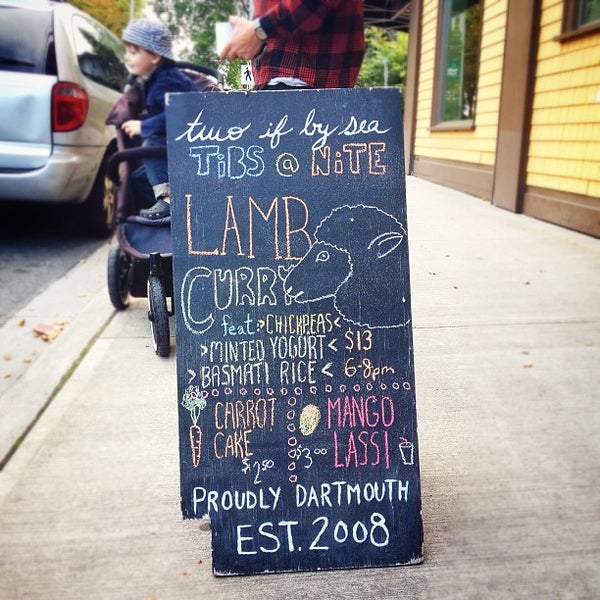 two if by sea
TiBS @ NiTE
LAMB
CURRY
feat: >CHICKPEAS<
>MINTED YOGURT< $13
>BASMATI RICE< 6-8pm
CARROT CAKE $2.50
MANGO LASSI $3.00
PROUDLY DARTMOUTH
EST. 2008